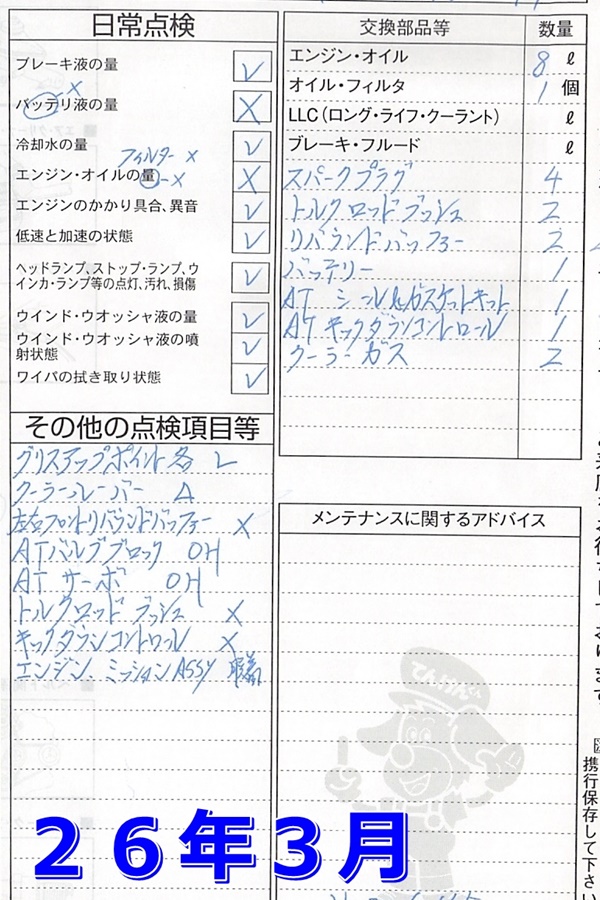 日常点検
ブレーキ液の量 レ
×
バッテリ液の量 ×
冷却水の量 レ
フィルター ×
エンジン・オイルの量 - × ×
エンジンのかかり具合、異音 レ
低速と加速の状態 レ
ヘッドランプ、ストップ・ランプ、ウ
インカ・ランプ等の点灯、汚れ、損傷 レ
ウインド・ウオッシャ液の量 レ
ウインド・ウオッシャ液の噴
射状態 レ
ワイパの拭き取り状態 レ
その他の点検項目等
グリスアップポイント各 L
クーラーレーバー A
左右フロントリバウンドバッファー ×
ATバルブブロック OH
AT サーボ OH
トルクロッド ブッシュ ×
キックダウンコントロール ×
エンジン、ミッションASSY 脱着
交換部品等 数量
エンジン・オイル 8 ℓ
オイル・フィルタ 1 個
LLC(ロング・ライフ・クーラント) ℓ
ブレーキ・フルード ℓ
スパークプラグ 4
トルクロッドブッシュ 2
リバウンドバッファー 2
バッテリー 1
AT シール&ガスケットキット 1
ATキックダウンコントロール 1
クーラーガス 2
メンテナンスに関するアドバイス
てんけんくん
携行保存して下さい
26年3月